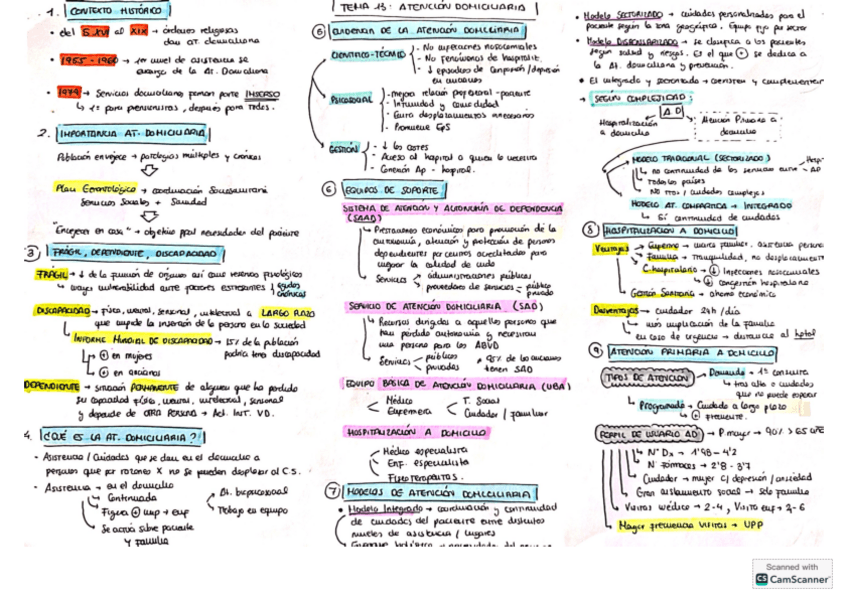 TEMA 13: ATENCIÓN DOMICILIARIA
1. CONTEXTO HISTÓRICO
• del S.XVI al XIX → órdenes religiosas
dan at. domiciliaria
• 1955 - 1960 → 1er nivel de asistencia se
encarga de la At. Domiciliaria
• 1974 → Servicios domiciliarios forman parte INSERSO
↳ 1º para pensionistas, después para todos.
2. IMPORTANCIA AT. DOMICILIARIA
Población envejece → patologías múltiples y crónicas
Plan Gerontológico → coordinación Sociosanitaria
Servicios Sociales + Sanidad
"Envejecer en casa" → objetivo necesidades del paciente
3 FRÁGIL, DEPENDIENTE, DISCAPACIDAD
FRÁGIL → ↓ de la función de órganos así como reservas fisiológicas
↳ mayor vulnerabilidad ante factores estresantes agudos
crónicos
DISCAPACIDAD → física, mental, sensorial, intelectual a LARGO PLAZO
que impide la inserción de la persona en la sociedad
INFORME MUNDIAL DE DISCAPACIDAD → 15% de la población
podría tener discapacidad
↳ + en mujeres
↳ + en ancianos
DEPENDIENTE → situación PERMANENTE de alguien que ha perdido
su capacidad física, mental, intelectual, sensorial
y depende de OTRA PERSONA → Act. INT. VD.
4. ¿QUÉ ES LA AT. DOMICILIARIA?
- Asistencia / Cuidados que se dan en el domicilio a
personas que por razones X no se pueden desplazar al C.S.
- Asistencia → en el domicilio
Continuada
At. biopsicosocial
Figura + imp → enf
Trabajo en equipo
Se actúa sobre paciente
y familia
5 DE LA ATENCIÓN DOMICILIARIA
CIENTÍFICO-TÉCNICO
- No infecciones nosocomiales
- No fenómenos de hospitaliz.
- ↓ episodios de confusión/depresión
en ancianos
PSICOSOCIAL
- mejora relación profesional-paciente
- Intimidad y comodidad
- Evita desplazamientos innecesarios
- Promueve EpS
GESTIÓN
- ↓ los costes
- Acceso al hospital a quien lo necesita
- Conexión Ap - hospital.
6 EQUIPOS DE SOPORTE
SISTEMA DE ATENCIÓN Y AUTONOMÍA DE DEPENDENCIA
(SAAD)
↳ Prestaciones económicas para promoción de la
autonomía, atención y protección de personas
dependientes por centros acreditados para
mejorar la calidad de vida
↳ Servicios
administraciones públicas
proveedores de servicios - público
privado
SERVICIO DE ATENCIÓN DOMICILIARIA (SAD)
↳ Recursos dirigidos a aquellas personas que
han perdido autonomía y necesitan
una persona para las ABVD
↳ Servicios
públicos
privados
* 95% de los ancianos
tienen SAD
EQUIPO BÁSICA DE ATENCIÓN DOMICILIARIA (UBA)
Médico
Enfermera
T. Social
Cuidador / familiar
HOSPITALIZACIÓN A DOMICILIO
Médico especialista
Enf. especialista
Fisioterapeutas.
7 MODELOS DE ATENCIÓN DOMICILIARIA
• Modelo Integrado → coordinación y continuidad
de cuidados del paciente entre distintos
niveles de asistencia / lugares
• Modelo SECTORIZADO → cuidados personalizados para el
paciente según la zona geográfica.
• Modelo DISPENSARIZADO → se clasifica a los pacientes
según salud y riesgo. Es el que + se dedica a
la At. domiciliaria y prevención.
• El integrado y sectorizado → coexisten y complementan
→ SEGÚN COMPLEJIDAD:
AD
Hospitalización
a domicilio
Atención Primaria a
domicilio
MODELO TRADICIONAL (SECTORIZADO)
↳ no continuidad de los servicios entre
Hosp.
AP
Todos los países
No ttos / cuidados complejos
MODELO AT. COMPARTIDA → INTEGRADO
↳ Sí continuidad de cuidados
8 HOSPITALIZACIÓN A DOMICILIO
Ventajas
Enfermo -
Familia → tranquilidad, no desplazamiento
C. hospitalario → ↓ Infecciones nosocomiales
↓ congestión hospitalaria
Gestión Sanitaria → ahorro económico
Desventajas → cuidador 24h/día
↳ más implicación de la familia
en caso de urgencia → distancia al hptal
9 ATENCIÓN PRIMARIA A DOMICILIO
TIPOS DE ATENCIÓN
Demanda → 1ª consulta
↳ tras alta o cuidados
que no puede esperar
Programada → Cuidado a largo plazo
↳ + frecuente.
PERFIL DE USUARIO AD → P. mayor → 90% > 65
Nº Dx → 1'98 - 4'2
Nº fármacos → 2'8 - 3'7
Cuidador → mujer c/ depresión / ansiedad
Gran aislamiento social → solo familia
Visitas médico → 2-4, Visita enf → 3-6
Mayor frecuencia visitas → UPP
Scanned with
CS CamScanner